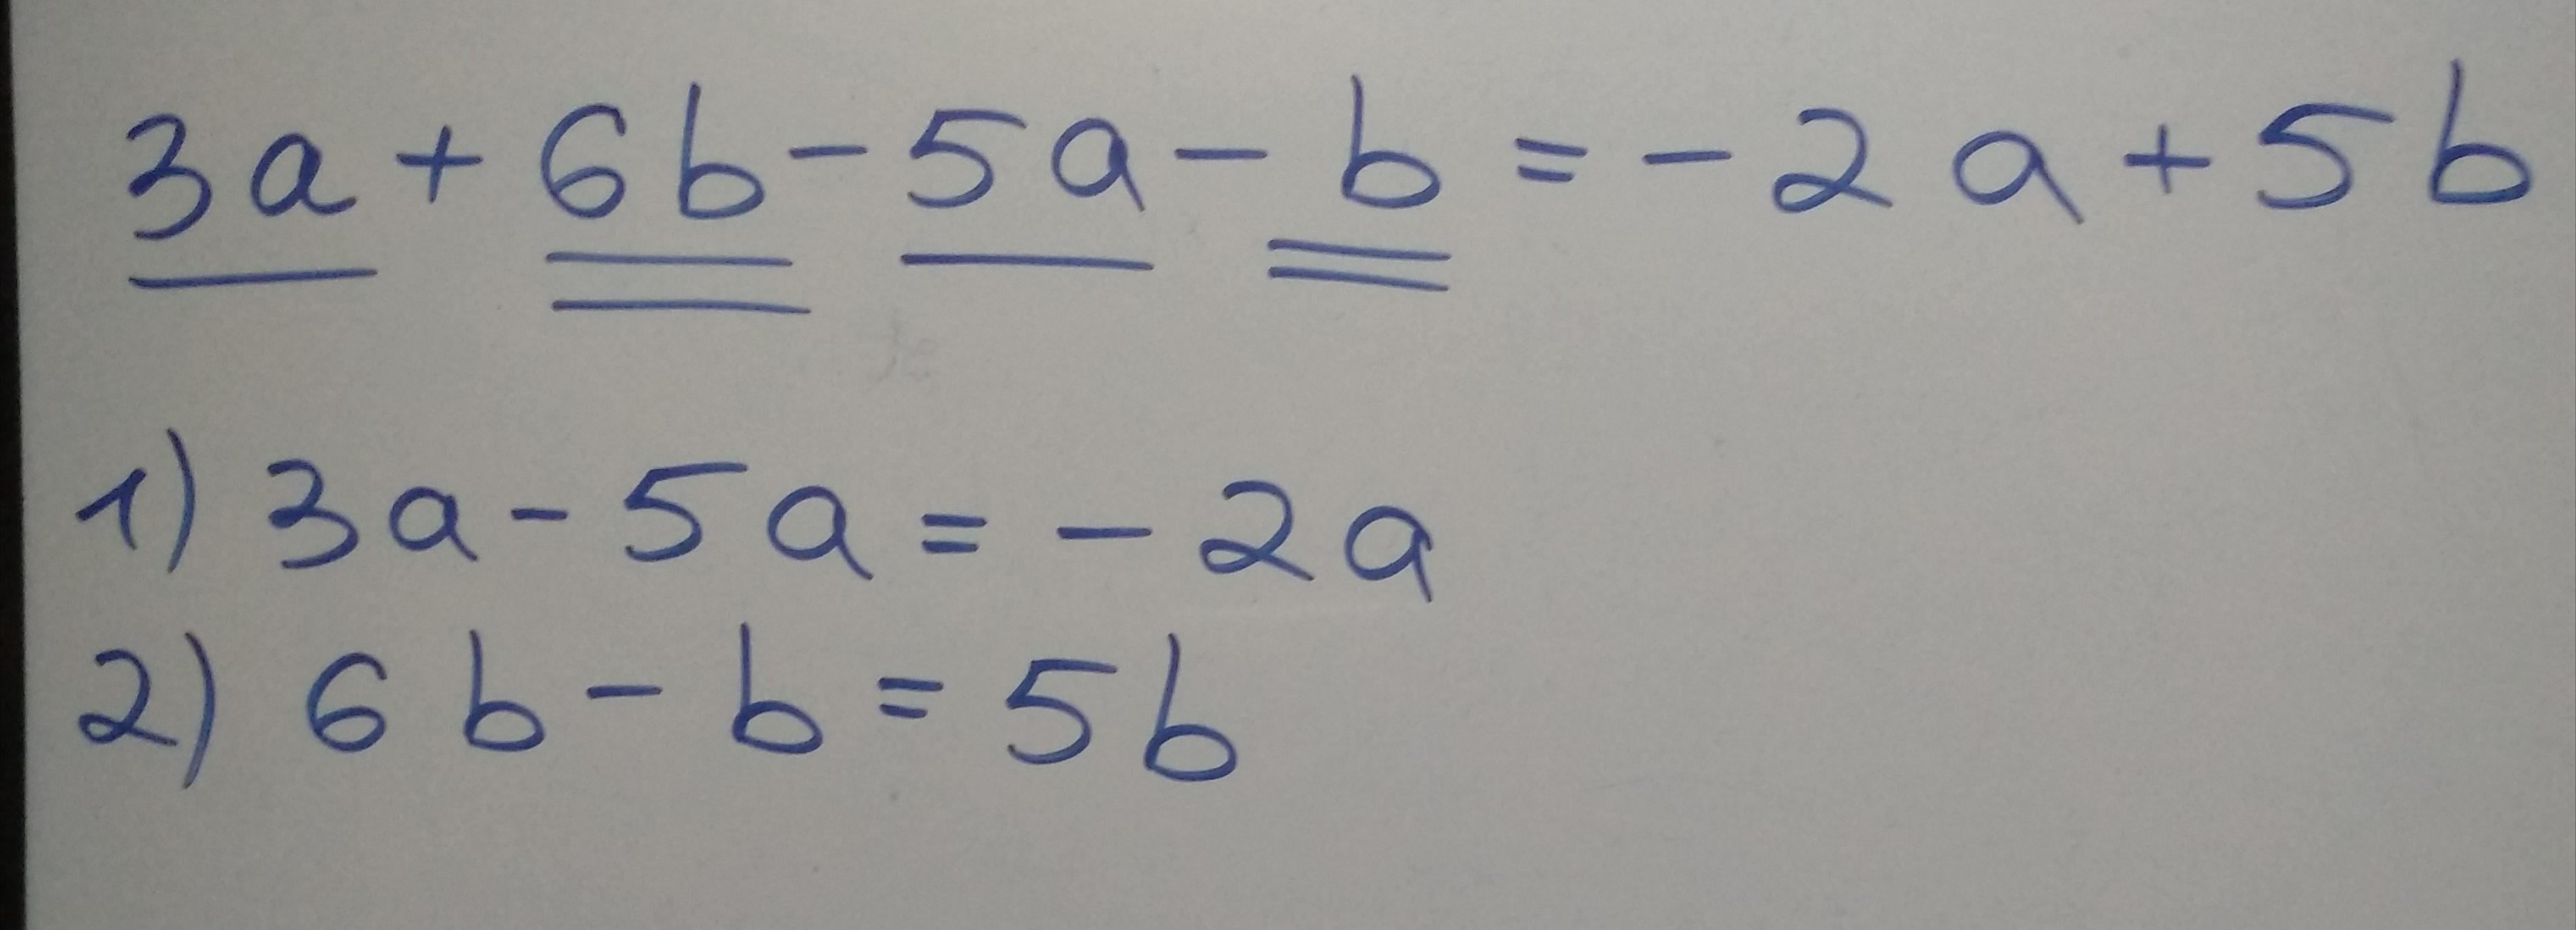 3a + 6b - 5a - b = - 2a + 5b
1) 3a - 5a = - 2a
2) 6b - b = 5b